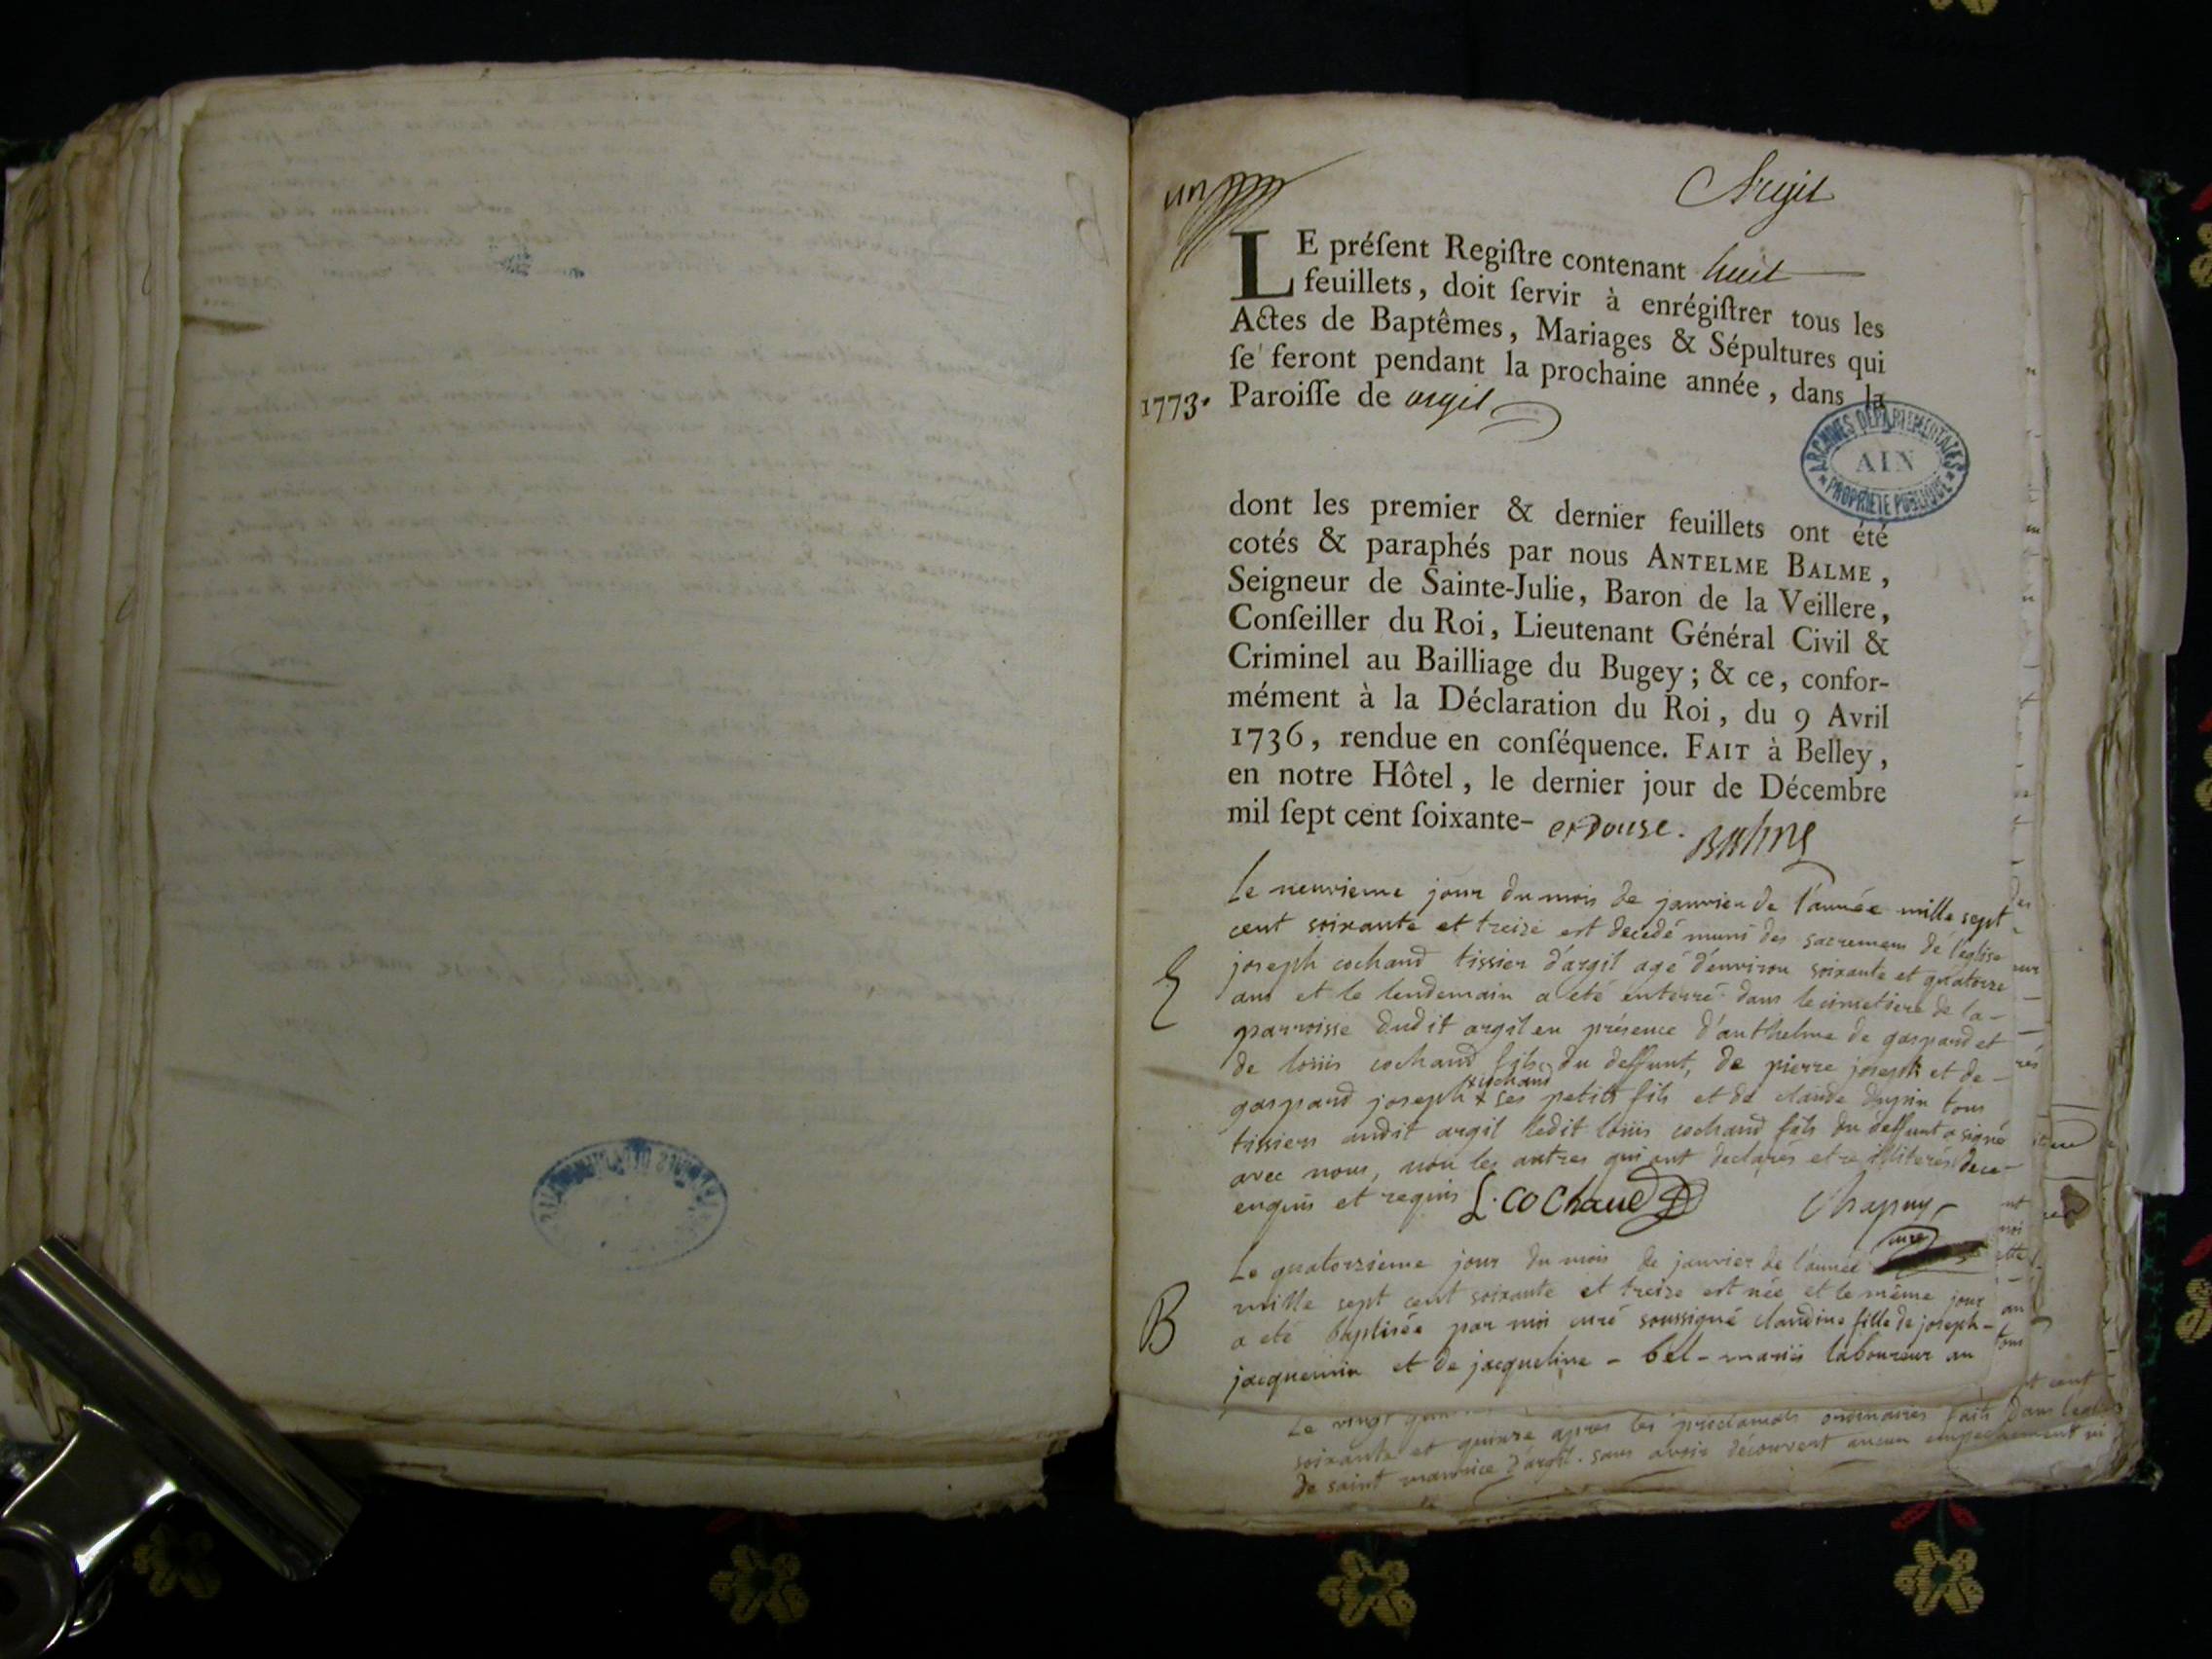 un
Argil
LE préſent Regiſtre contenant huit
feuillets, doit ſervir à enrégiſtrer tous les
Actes de Baptêmes, Mariages & Sépultures qui
ſe feront pendant la prochaine année, dans la
1773. Paroiſſe de argil
ARCHIVES DEPARTEMENTALES
AIN
PROPRIETE PUBLIQUE
dont les premier & dernier feuillets ont été
cotés & paraphés par nous ANTELME BALME,
Seigneur de Sainte-Julie, Baron de la Veillere,
Conſeiller du Roi, Lieutenant Général Civil &
Criminel au Bailliage du Bugey; & ce, confor-
mément à la Déclaration du Roi, du 9 Avril
1736, rendue en conſéquence. FAIT à Belley,
en notre Hôtel, le dernier jour de Décembre
mil ſept cent ſoixante- et douse. Balme
Le neuvieme jour du mois de janvier de l'année mille sept
cent soixante et treize est decedé muni des sacremens de l'eglise
joseph cochand tissier d'argil agé d'environ soixante et quatorze
ans et le lendemain a eté enterré dans le cimetiere de la-
parroisse dudit argil en présence d'anthelme de gaspard et
de loüis cochand fils du deffunt, de pierre joseph et de-
x cochand
gaspard joseph x ses petits fils et de claude dupin tous
tissiers audit argil ledit loüis cochand fils du deffunt a signé
avec nous, non les autres qui ont declarés etre illiterés de ce-
enquis et requis L. COchaud Chapuy
curé
Le quatorzieme jour du mois de janvier de l'année
B
mille sept cent soixante et treize est née et le même jour
a eté baptisée par moi curé soussigné claudine fille de joseph-
jacquemin et de jacqueline - bel - mariés laboureur au
Le vingt
soixante et quinze apres les proclamats ordinaires faits dans
de saint maurice d'argil. sans avoir découvert aucun empechement ni